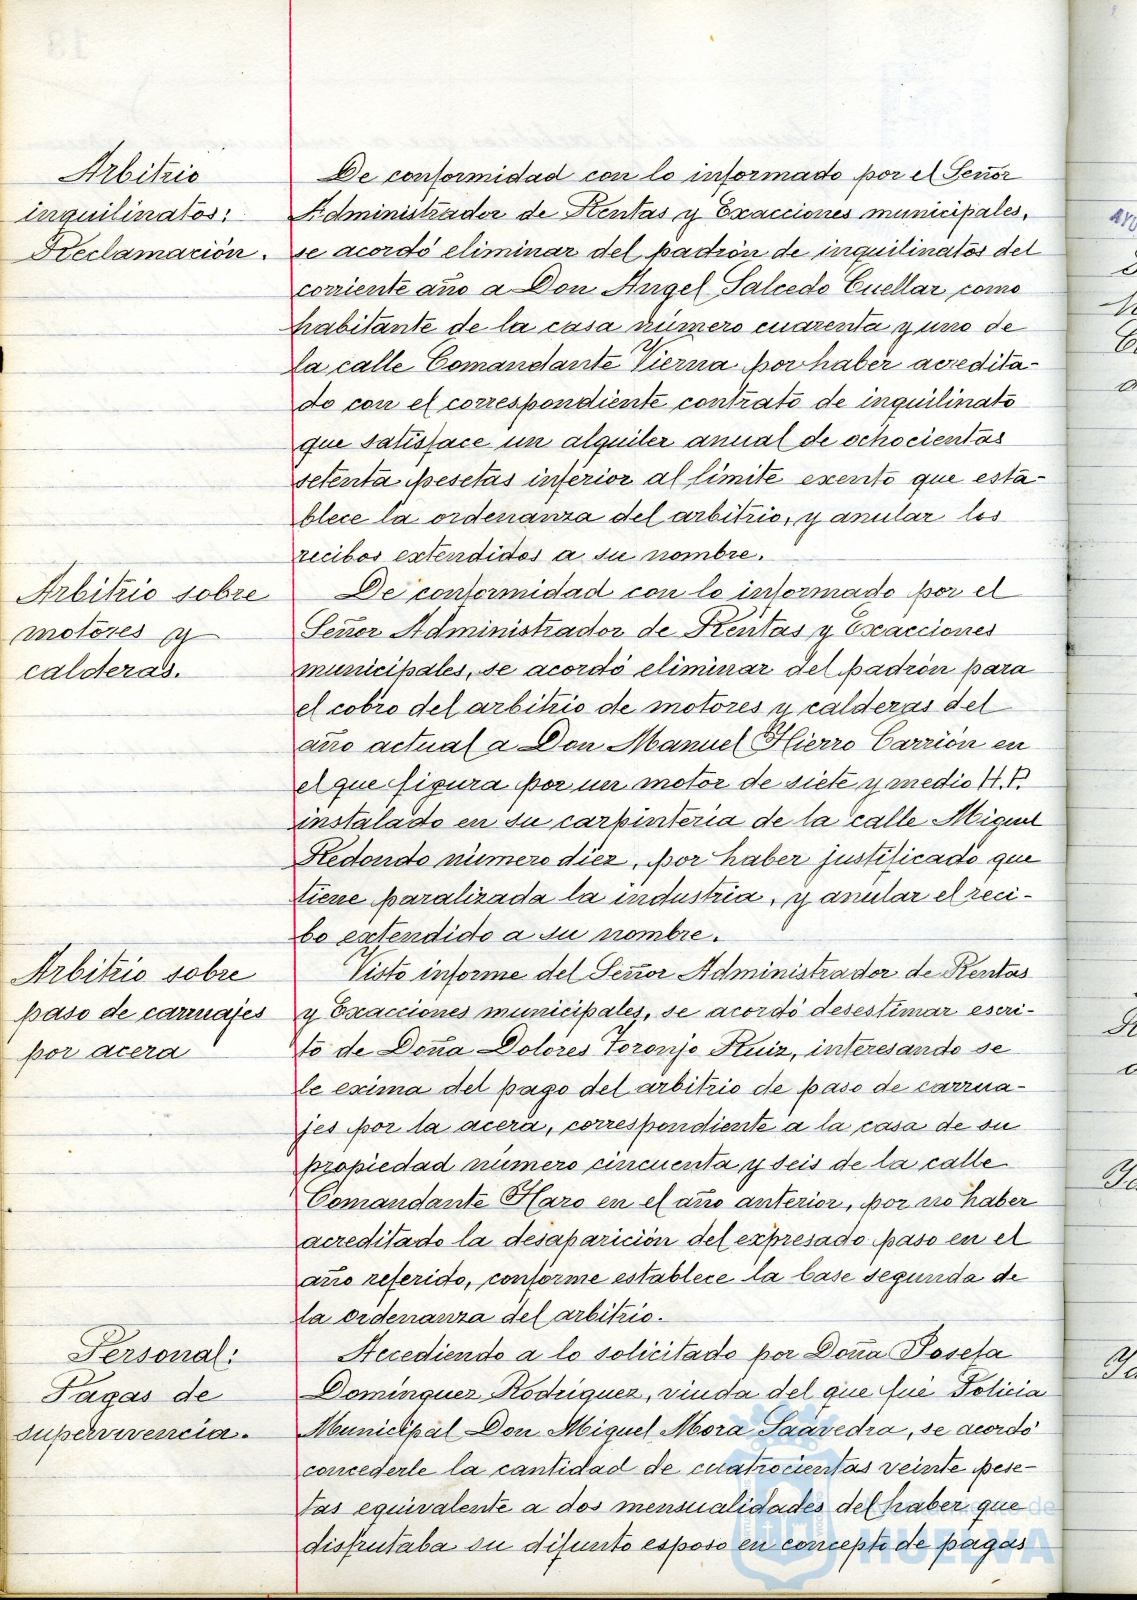 Arbitrio
inquilinatos:
Reclamación.
De conformidad con lo informado por el Señor
Administrador de Rentas y Exacciones municipales,
se acordó eliminar del padrón de inquilinatos del
corriente año a Don Angel Salcedo Cuellar como
habitante de la casa número cuarenta y uno de
la calle Comandante Vierna por haber acredita-
do con el correspondiente contrato de inquilinato
que satisface un alquiler anual de ochocientas
setenta pesetas inferior al límite exento que esta-
blece la ordenanza del arbitrio, y anular los
recibos extendidos a su nombre.
Arbitrio sobre
motores y
calderas.
De conformidad con lo informado por el
Señor Administrador de Rentas y Exacciones
municipales, se acordó eliminar del padrón para
el cobro del arbitrio de motores y calderas del
año actual a Don Manuel Hierro Carrión en
el que figura por un motor de siete y medio H.P.
instalado en su carpinteria de la calle Miguel
Redondo número diez, por haber justificado que
tiene paralizada la industria, y anular el reci-
bo extendido a su nombre.
Arbitrio sobre
paso de carruajes
por acera
Visto informe del Señor Administrador de Rentas
y Exacciones municipales, se acordó desestimar escri-
to de Doña Dolores Toronjo Ruiz, interesando se
le exima del pago del arbitrio de paso de carrua-
jes por la acera, correspondiente a la casa de su
propiedad número cincuenta y seis de la calle
Comandante Haro en el año anterior, por no haber
acreditado la desaparición del expresado paso en el
año referido, conforme establece la base segunda de
la ordenanza del arbitrio.
Personal:
Pagas de
supervivencia.
Accediendo a lo solicitado por Doña Josefa
Domínguez Rodríguez, viuda del que fué Policia
Municipal Don Miguel Mora Saavedra, se acordó
concederle la cantidad de cuatrocientas veinte pese-
tas equivalente a dos mensualidades del haber que
disfrutaba su difunto esposo en concepto de pagas
Ayuntamiento de
HUELVA